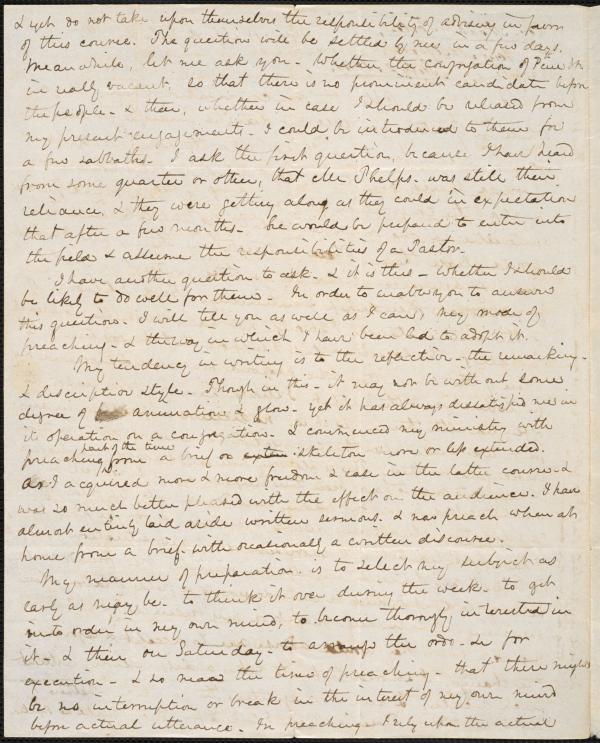 & yet do not take upon themselves the responsibility of advising in favor
of this course. The question will be settled by me in a few days.
Meanwhile, let me ask you - Whether the congregation of Pine St.
is really vacant, so that there is no prominent candidate before
the people - & then, whether in case I should be released from
my present engagements - I could be introduced to them for
a few sabbaths - I ask the first question, because I have heard
from some quarter or other, that Mr Phelps - was still their
reliance, & they were getting along as they could in expectation
that after a few months - he would be prepared to enter into
the field & assume the responsibilities of a Pastor.
I have another question to ask - & it is this - whether I should
be likely to do well for them - In order to enable you to answer
this question - I will tell you as well as I can, my mode of
preaching - & the way in which I have been led to adopt it.
My tendency in writing is to the reflective - the remarking -
& descriptive style - Though in this - it may not be without some
degree of animation & glow - yet it has always dissatisfied me in
its operation on a congregation. I commenced my ministry with
preaching part of the time from a brief or skeleton more or less extended.
As I acquired more & more freedom & ease in the latter course - &
was so much better pleased with the effect on the audience. I have
almost entirely laid aside written sermons - & now preach when at
home from a brief - with occasionally a written discourse.
My manner of preparation - is to select my subject as
early as may be - to think it over during the week - to get
into order in my own mind, to become thoroughly interested in
it - & then on Saturday - to the for
execution - & so near the time of preaching - that there might
be no interruption or break in the interest of my own mind
before actual utterance. In preaching I rely upon the actual